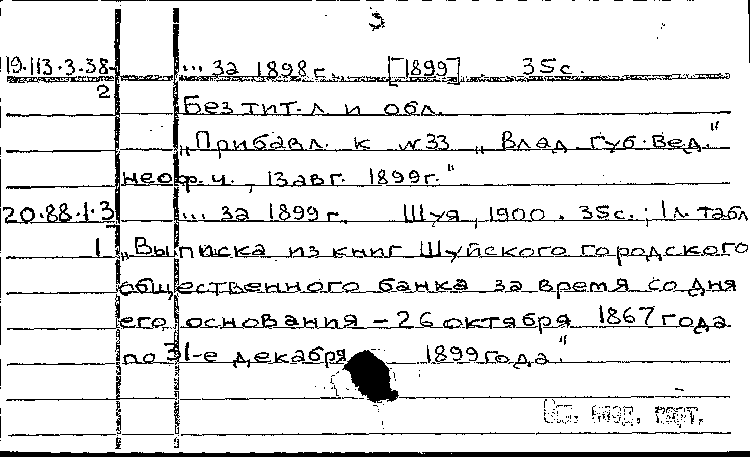 3
19.113.3.38- ... за 1898 г. [1899]. 35с.
2 Без тит. л и обл.
„Прибавл. к №33 „Влад. губ. вед."
неоф. ч., 13 авг. 1899г."
20.88.1.3 ... за 1899 г. Шуя, 1900. 35с.; 1л. табл
1 „Выписка из книг Шуйского городского
общественного банка за время со дня
его основания – 26 октября 1867 года
по 31-е декабря 1899 года."